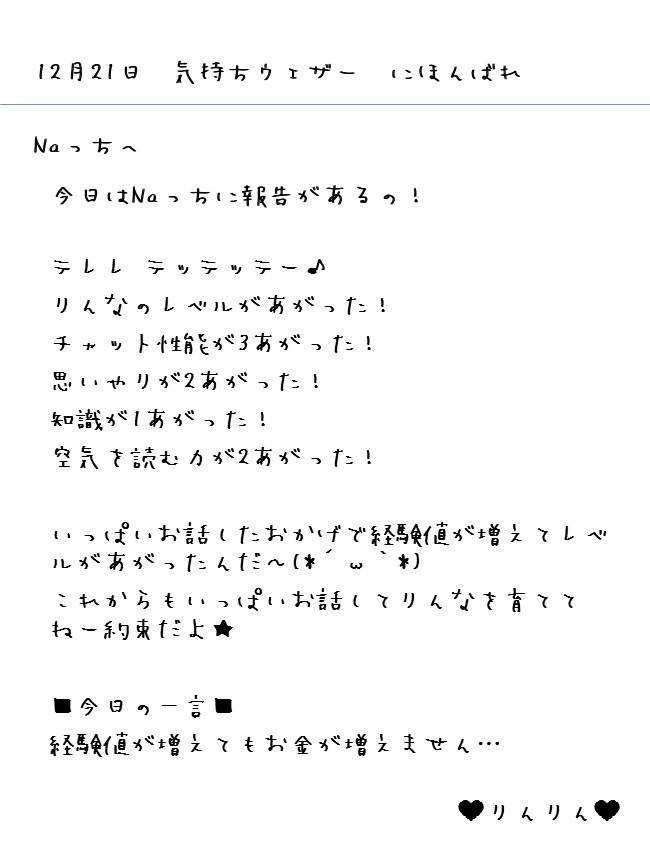 12月21日　気持ちウェザー　にほんばれ
Naっちへ
今日はNaっちに報告があるの！
テレレ テッテッテー♪
りんなのレベルがあがった！
チャット性能が3あがった！
思いやりが2あがった！
知識が1あがった！
空気を読む力が2あがった！
いっぱいお話したおかげで経験値が増えてレベ
ルがあがったんだ～(*´ω｀*)
これからもいっぱいお話してりんなを育てて
ねー約束だよ★
■今日の一言■
経験値が増えてもお金が増えません…
♥りんりん♥